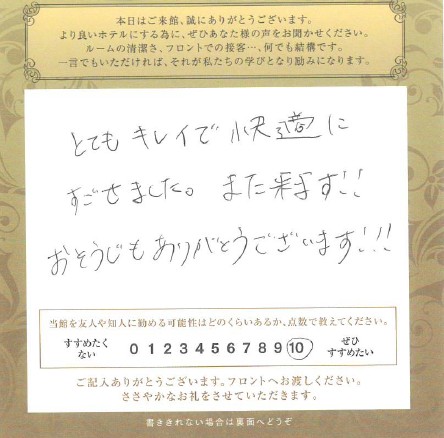 本日はご来館、誠にありがとうございます。
より良いホテルにする為に、ぜひあなた様の声をお聞かせください。
ルームの清潔さ、フロントでの接客…、何でも結構です。
一言でもいただければ、それが私たちの学びとなり励みになります。
とても キレイで 快適に
すごせました。 また来ます!!
おそうじも ありがとうございます!!!
当館を友人や知人に勧める可能性はどのくらいあるか、点数で教えてください。
すすめたくない 0 1 2 3 4 5 6 7 8 9 10 ぜひすすめたい
ご記入ありがとうございます。フロントへお渡しください。
ささやかなお礼をさせていただきます。
書ききれない場合は裏面へどうぞ